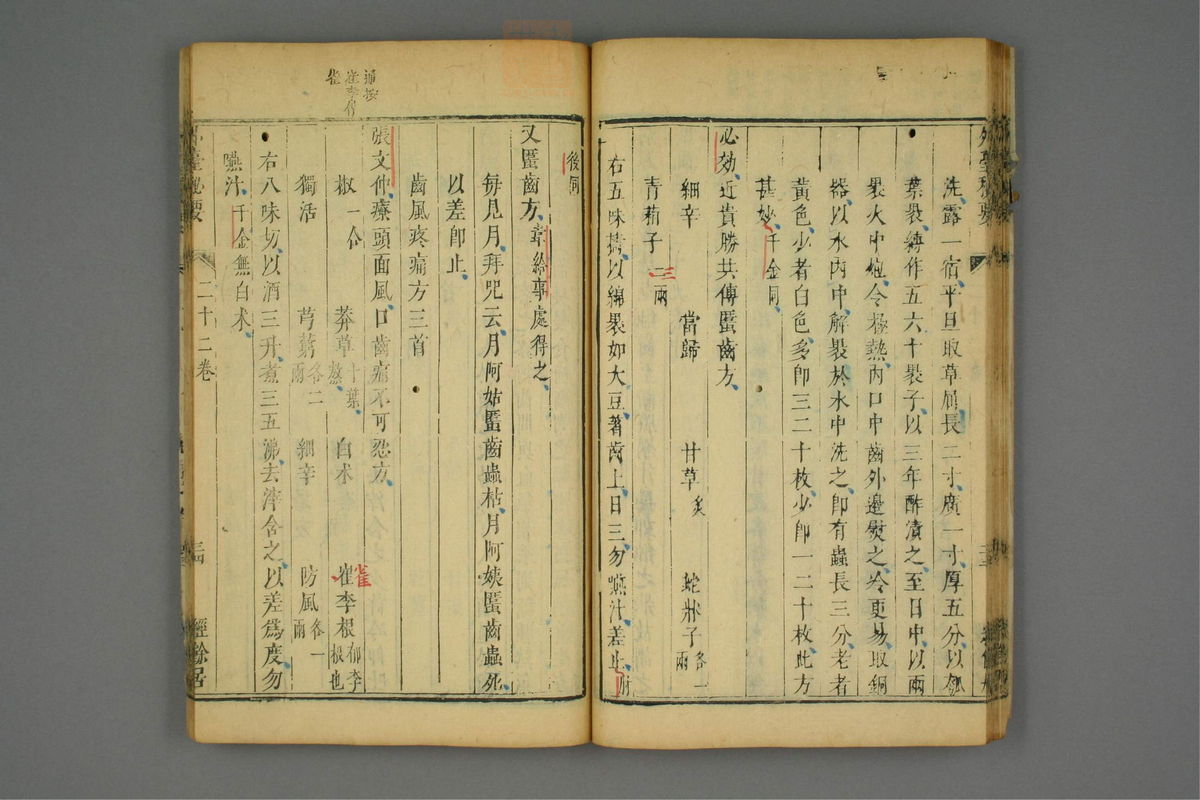 洗露一宿平旦取草屈長二寸廣一寸厚五分以瓠
葉裹縛作五六十裹子以三年酢漬之至日中以兩
裹火中炮令極熱內口中齒外邊熨之冷更易取銅
器以水內中解裹於水中洗之即有蟲長三分老者
黃色少者白色多即三二十枚少即一二十枚此方
甚妙千金同
必効近貴勝共傳䘌齒方
細辛 當歸 甘草炙 蛇牀子各一兩
青葙子三兩
右五味擣以綿裹如大豆著齒上日三勿嚥汁差止
後同
又䘌齒方韋給事處得之
每見月拜咒云月阿姑䘌齒蟲枯月阿姨䘌齒蟲死
以差即止
齒風疼痛方三首
張文仲療頭面風口齒痛不可忍方
椒一合 莽草十葉熬 白朮 崔李根郁李根也
雀
獨活 芎藭各二兩 細辛 防風各一兩
右八味切以酒三升煮三五沸去滓含之以差為度勿
嚥汁千金無白朮
二十二卷
經餘居